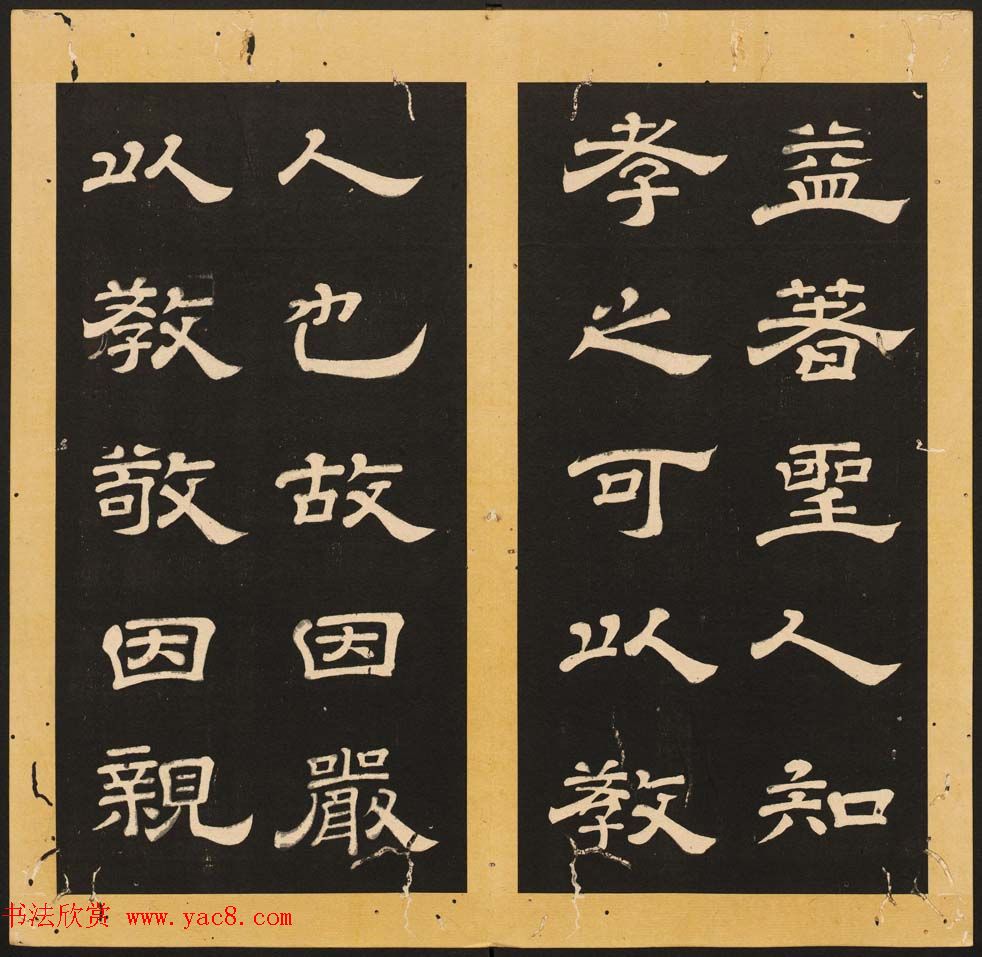 益著聖人知
孝之可以教
人也故因嚴
以教敬因親
书法欣赏 www.yac8.com